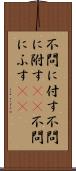 不問に付す不問
に附す 不問
にふす